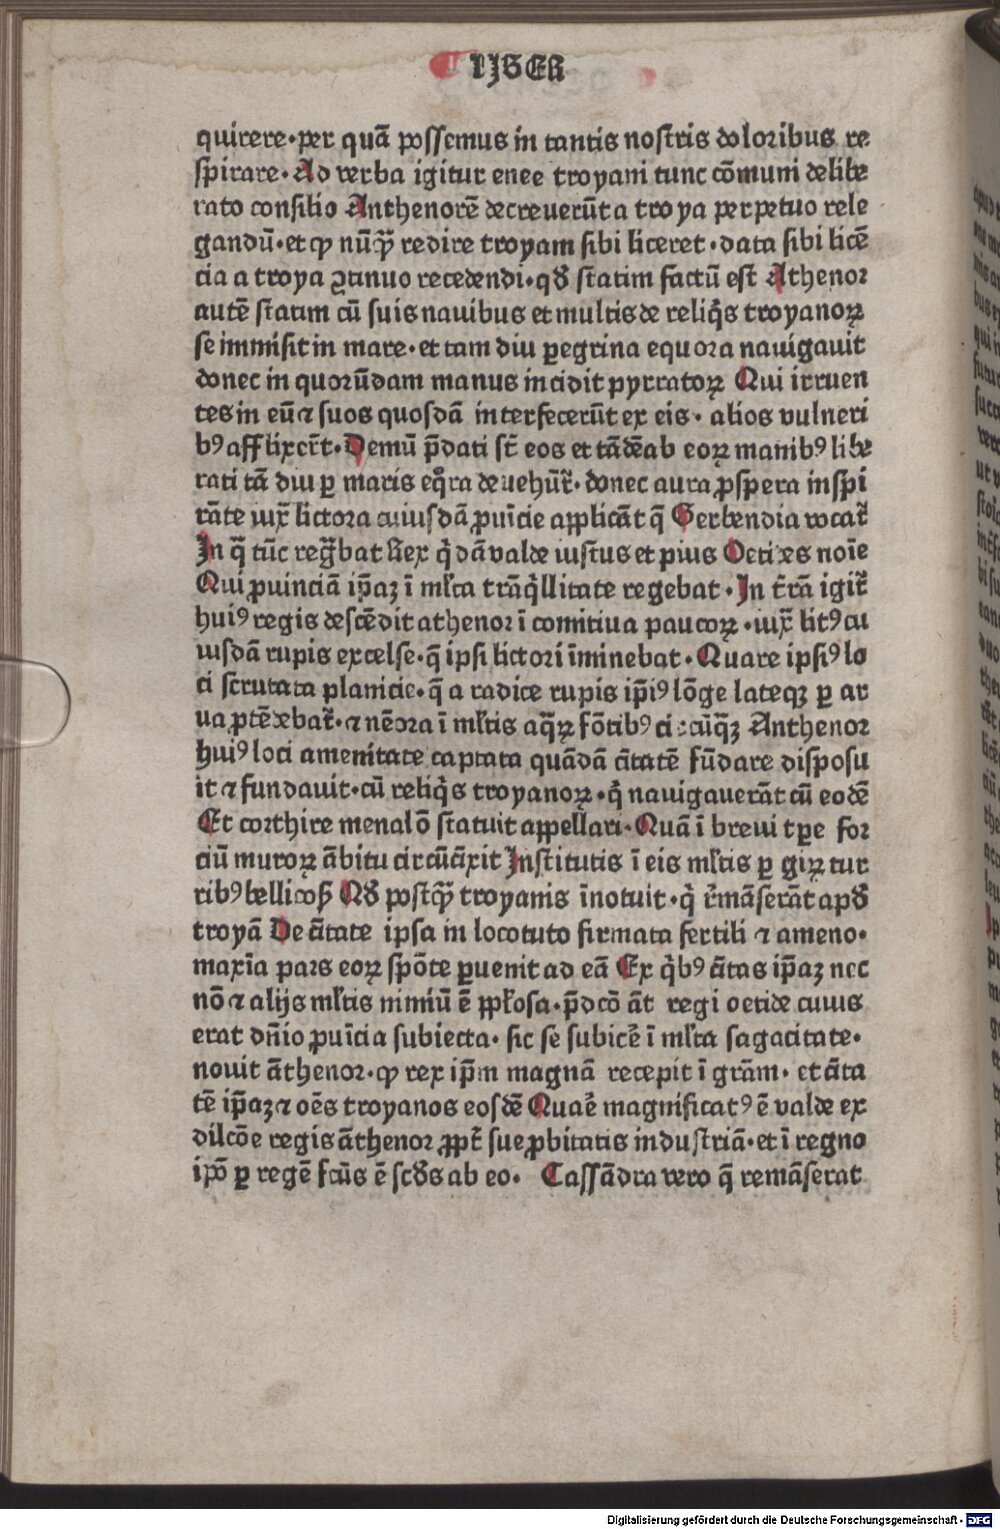 LIBER
quirere·per quā possemus in tantis nostris doloribus re
spirare·Ad verba igitur enee troyani tunc cōmuni delibe
rato consilio Anthenorē decreuerūt a troya perpetuo rele
gandū·et ꝙ nūꝙ̄ redire troyam sibi liceret·data sibi licē
cia a troya ꝯtinuo recedendi·qđ statim factū est Athenor
autē statim cū suis nauibus et multis de reliq̄s troyanoꝝ
se immisit in mare·et tam diu ꝑegrina equora nauigauit
donec in quorūdam manus incidit pyrratoꝝ Qui irruen
tes in eū ⁊ suos quosdā interfecerūt ex eis· alios vulneri
bꝰ afflixer̄t·Demū p̄dati st̄ eos et tādē ab eoꝝ manibꝰ libe
rati tā diu ꝑ maris eq̊ra deuehūt᷑·donec aura ꝓspera inspi
rāte iux̄ littora cuiusdā ꝓuīcie applicāt q̄ Gerbendia vocat᷑
In q̄ tūc regn̄bat Rex q̇dā valde iustus et pius Oetides noīe
Qui ꝓuinciā ip̄aꝫ ī ml̄ta trāq̇llitate regebat·In t̄rā igit᷑
huiꝰ regis descēdit athenor ī comitiua paucoꝝ·iux̄ litꝰ cu
iusdā rupis excelse·q̄ ipsi littori īminebat·Quare ipsiꝰ lo
ci scrutata planicie·q̄ a radice rupis ip̄iꝰ lōge lateqꝫ ꝑ ar
ua ꝓtēdebat᷑·⁊ nēora ī ml̄tis aq̄ꝝ fōtibꝰ circūq̄ꝫ Anthenor
huiꝰ loci amenitate captata quādā c̄itatē fūdare disposu
it ⁊ fundauit·cū reliq̄s troyanoꝝ·q̇ nauigauerāt cū eodē
Et corthire menalō statuit appellari·Quā ī breui tꝑe for
ciū muroꝝ ābitu circūcīxit Institutis ī eis ml̄tis ꝑ giꝝ tur
ribꝰ bellicoß Qđ postꝙ̄ troyanis īnotuit·q̇ r̄māserāt apđ
troyā De c̄itate ipsa in loco tuto firmata fertili ⁊ ameno·
maxīa pars eoꝝ spōte ꝑuenit ad eā Ex q̇bꝰ c̄itas ip̄aꝫ nec
nō ⁊ alijs ml̄tis nimiū ē ppl̄osa·p̄dcō āt regi oetide cuius
erat dn̄io ꝓuīcia subiecta· sic se subicē ī ml̄ta sagacitate·
nouit āthenor·ꝙ rex ip̄m magnā recepit ī grām· et c̄ita
tē ip̄aꝫ ⁊ oēs troyanos eosdē Quaē magnificatꝰ ē valde ex
dilcōe regis āthenor ꝓpt̄ sue ꝓbitatis industriā·et ī regno
ip̄o ꝑ regē fcūs ē scđs ab eo· Cassādra vero q̄ remāserat
Digitalisierung gefördert durch die Deutsche Forschungsgemeinschaft - DFG